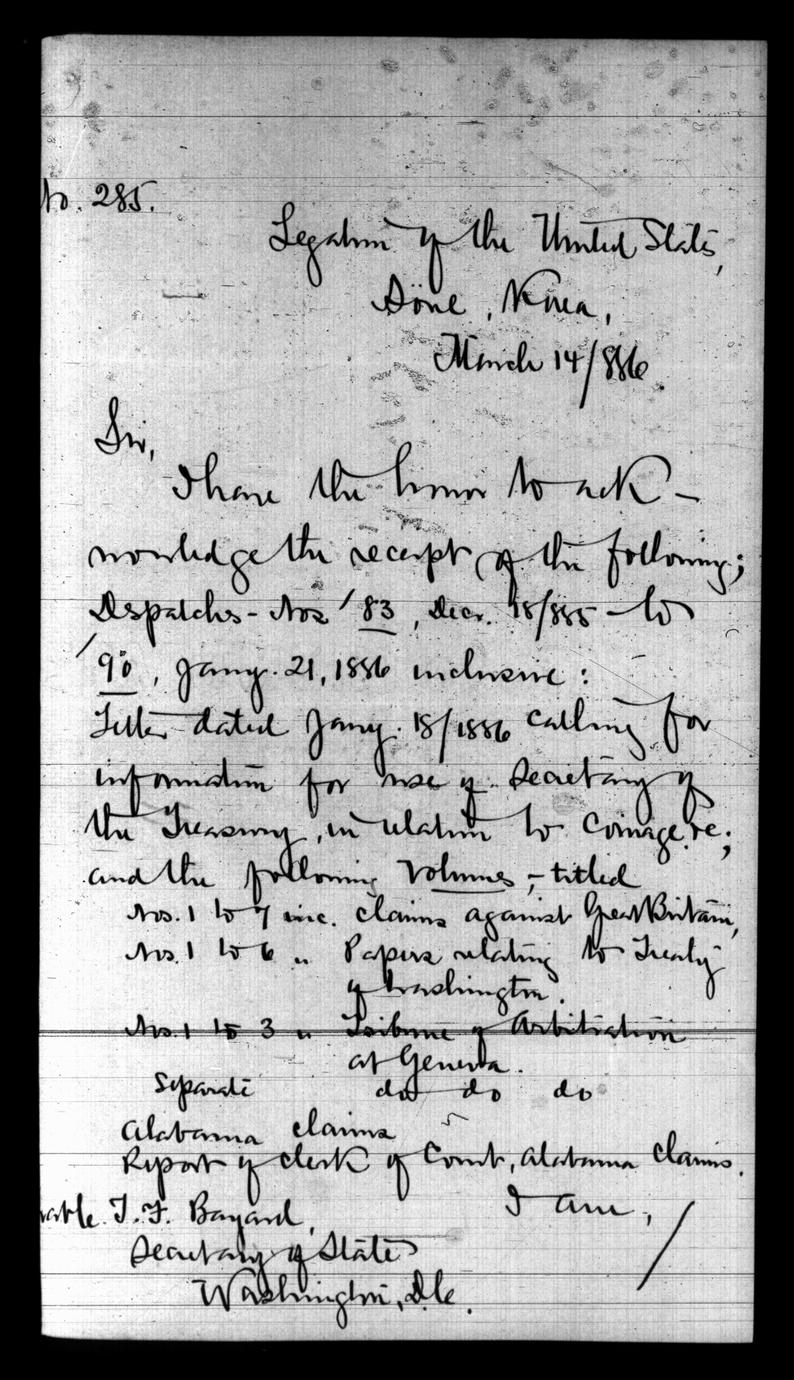 No. 285.
Legation of the United States,
Söul, Korea,
March 14/886.
Sir,
I have the honor to ack-
nowledge the receipt of the following;
Despatches - Nos '83, Decr. 18/885 - to
'90, Jany. 21, 1886 inclusive:
Letter dated Jany. 18/1886 calling for
information for use of Secretary of
the Treasury, in relation to Coinage &c;
and the following volumes, - titled
Nos. 1 to 7 inc. claims against Great Britain,
Nos. 1 to 6 " Papers relating to Treaty
of Washington.
Nos. 1 to 3 " Tribune of Arbitration
at Geneva.
Separate do do do
Alabama claims
Report of clerk of Court, Alabama claims.
I am,
rable T. F. Bayard,
Secretary of State
Washington, D.C.